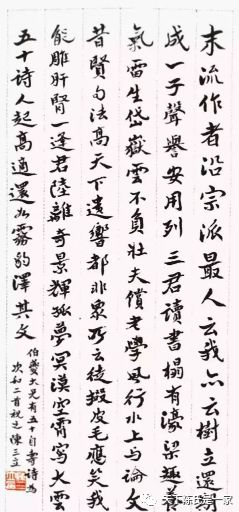 末流作者沿宗派最人云我亦云樹立還
成一子聲譽安用列三君讀書榻有濠梁趣養
氣雷生岱嶽雲不負壯夫償老學風行水上與論文
昔賢句法高天下遺響都非眾所云徒掇皮毛應笑我
能雕肝腎一逢君陸離奇景輝孤夢冥漠空霄寫大雲
五十詩人起高適還如霧豹澤其文
伯夔大兄有五十自壽詩為
次和二首祝之陳三立
天下陈氏是一家